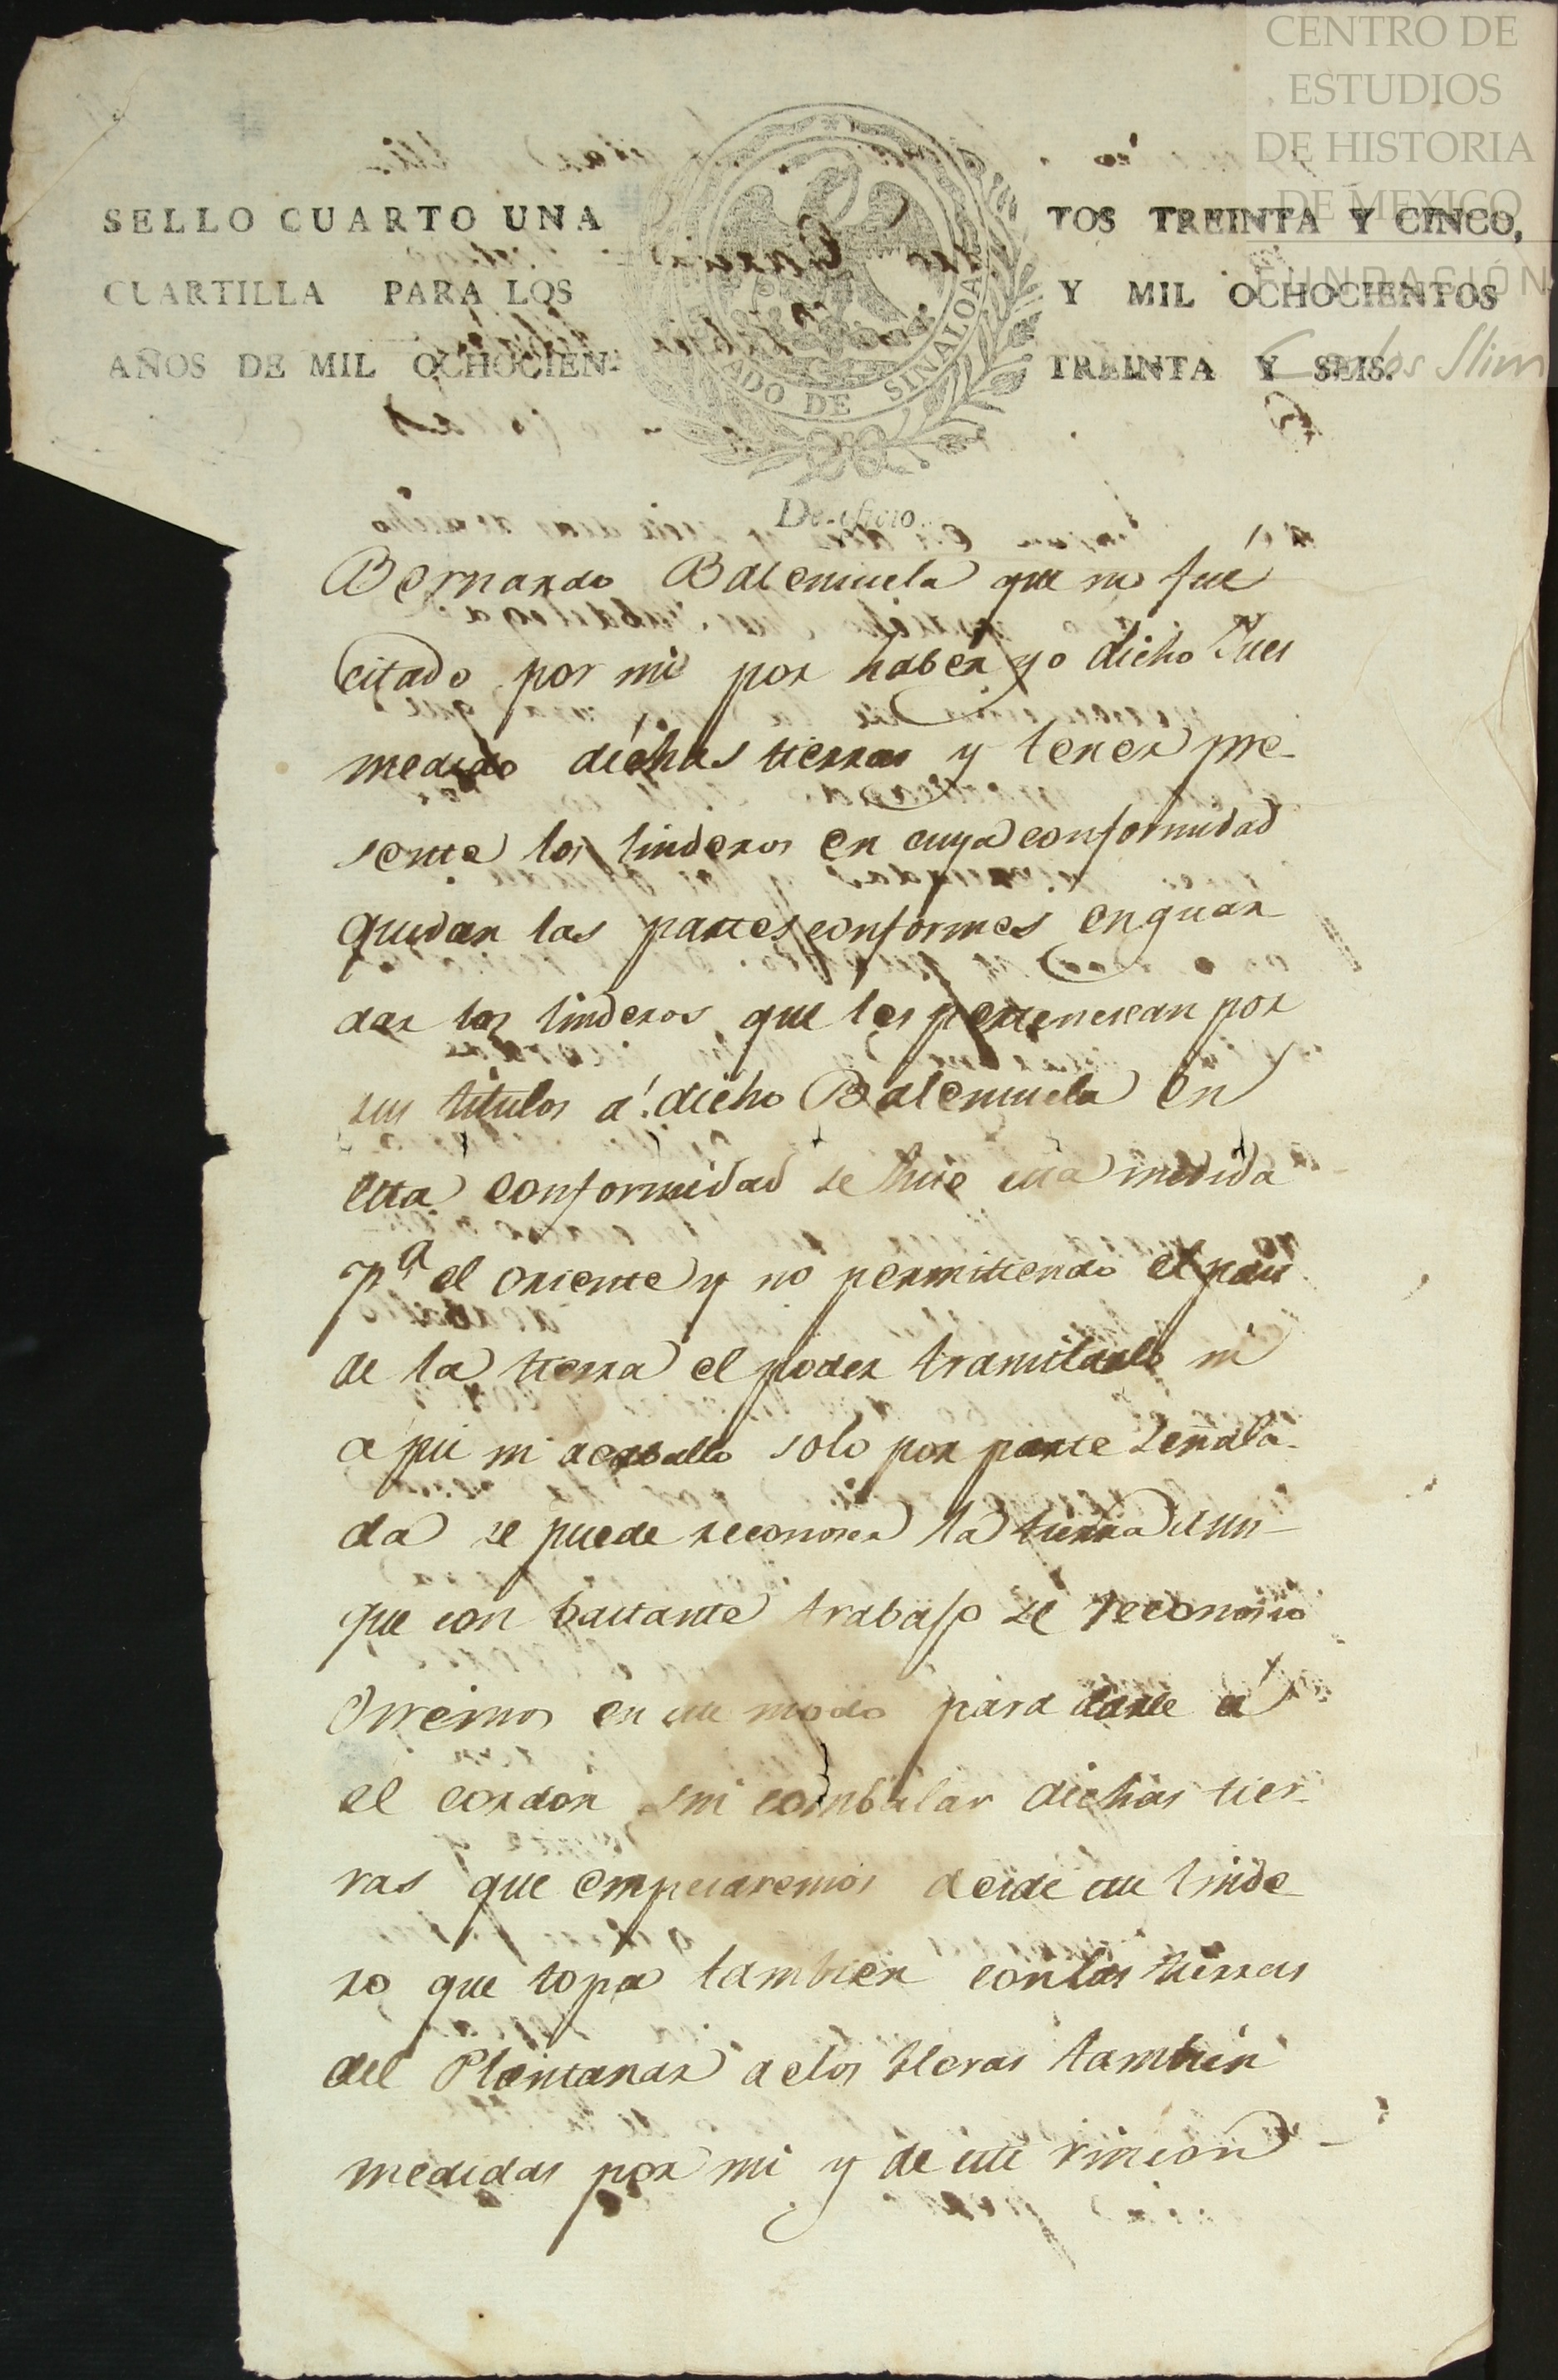 CENTRO DE
ESTUDIOS
DE HISTORIA
DE MEXICO
FUNDACIÓN
Carlos Slim
SELLO CUARTO UNA
CUARTILLA PARA LOS
AÑOS DE MIL OCHOCIEN-
ADO DE SINALOA
TOS TREINTA Y CINCO,
Y MIL OCHOCIENTOS
TREINTA Y SEIS.
De oficio.
Bernardo Balenzuela que no fué
citado por mi por haber yo dicho Jues
medido dichas tierras y tener pre-
sente los linderos en cuya conformidad
quedan las partes conformes en guar-
dar los linderos que les pertenescan por
sus titulos á dicho Balenzuela en
esta conformidad se hizo esta medida
pª el oriente y no permitiendo el pais
de la tierra el poder transitarlo ni
a pie ni acaballo solo por parte señala-
da se puede reconoser la tierra aun-
que con bastante trabajo se reconosio
en este modo para darle á
el cordon dichas tier-
ras que empesaremos desde este linde-
ro que topa tambien con las tierras
del Plantanar de los tambien
medidas por mi y de este rincon